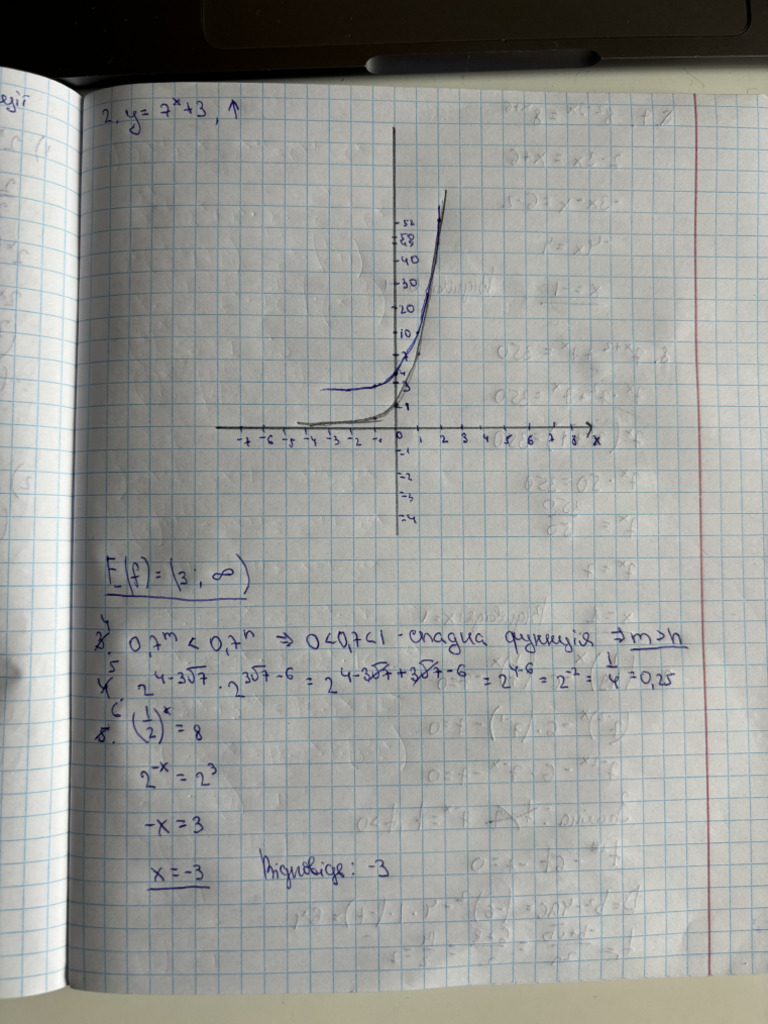 2. y = 7^x + 3, ↑
52
40
30
20
10
7
3
1
-7 -6 -5 -4 -3 -2 -1 0 1 2 3 4 5 6 7 8 x
-1
-2
-3
-4
E(f) = (3; ∞)
4. 0,7^m < 0,7^n ⇒ 0<0,7<1 - спадна функція ⇒ m>n
5. 2^(4-3√7) · 2^(3√7-6) = 2^(4-3√7+3√7-6) = 2^(4-6) = 2^(-2) = 1/4 = 0,25
6. (1/2)^x = 8
2^(-x) = 2^3
-x = 3
x = -3 Відповідь: -3